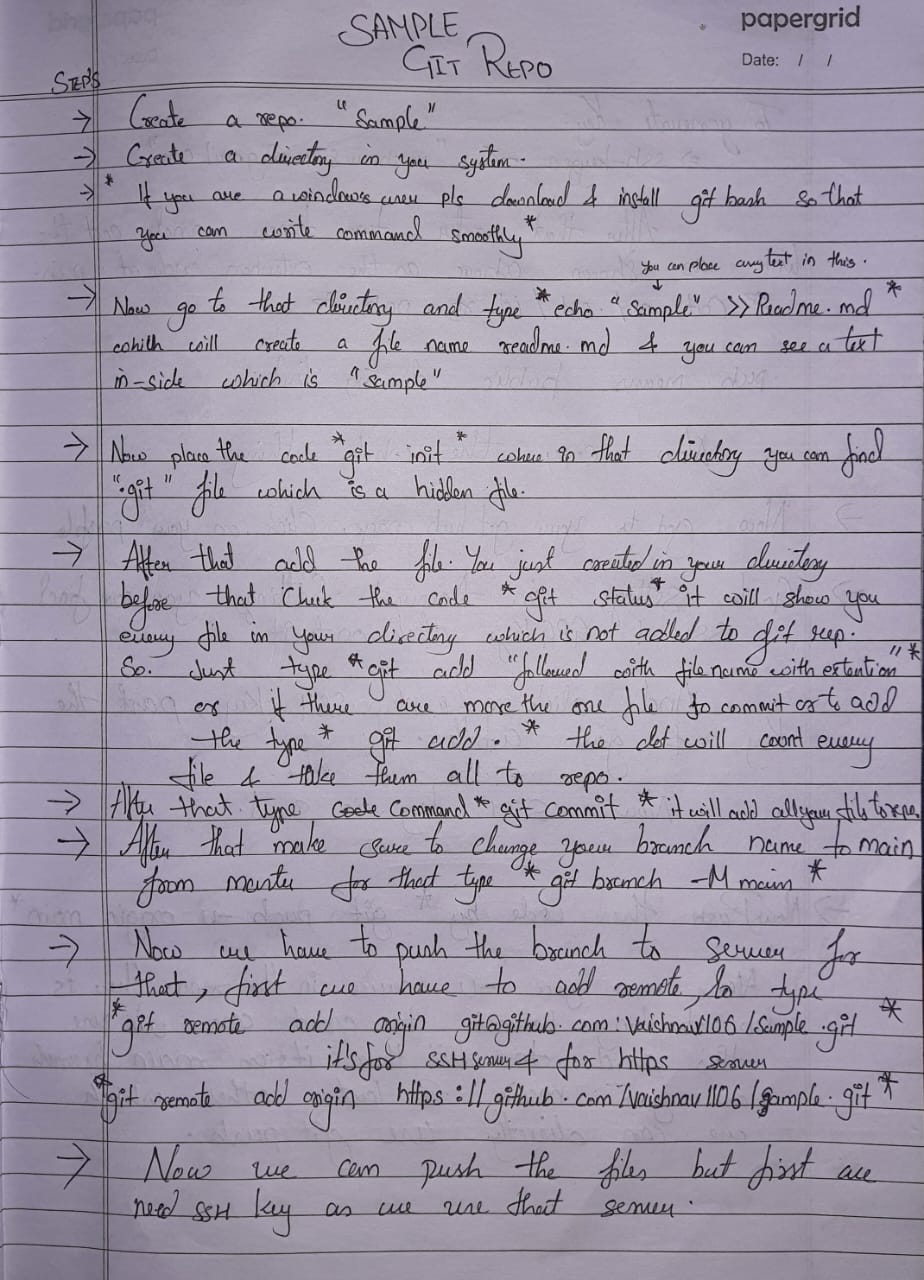 papergrid
Date: / /
SAMPLE
GIT REPO
STEPS
→ Create a repo. "Sample"
→ Create a directory in you system.
→ * If you are a windows user pls download & install git bash so that
you can write command smoothly *
you can place any text in this.
→ Now go to that directory and type * echo "Sample" >> Readme.md *
whith will create a file name readme.md & you can see a text
in-side which is "Sample"
→ Now place the code * git init * where in that directory you can find
".git" file which is a hidden file.
→ After that add the file. You just created in your directory
before that Check the code * git status * it will show you
every file in your directory which is not added to git rep.
So. Just type * git add "followed with file name with extention" *
or if there are more the one file to commit or to add
the type * git add . * the dot will count every
file & take them all to repo.
→ After that type code command * git commit * it will add all your file to repo
→ After that make sure to change your branch name to main
from master for that type * git branch -M main *
→ Now we have to push the branch to server for
that, first we have to add remote, to type
* git remote add origin git@github.com:Vaishnav1106/Sample.git *
it's for SSH server & for https server
* git remote add origin https://github.com/vaishnav1106/Sample.git *
→ Now we can push the files but first we
need SSH key as we use that server.